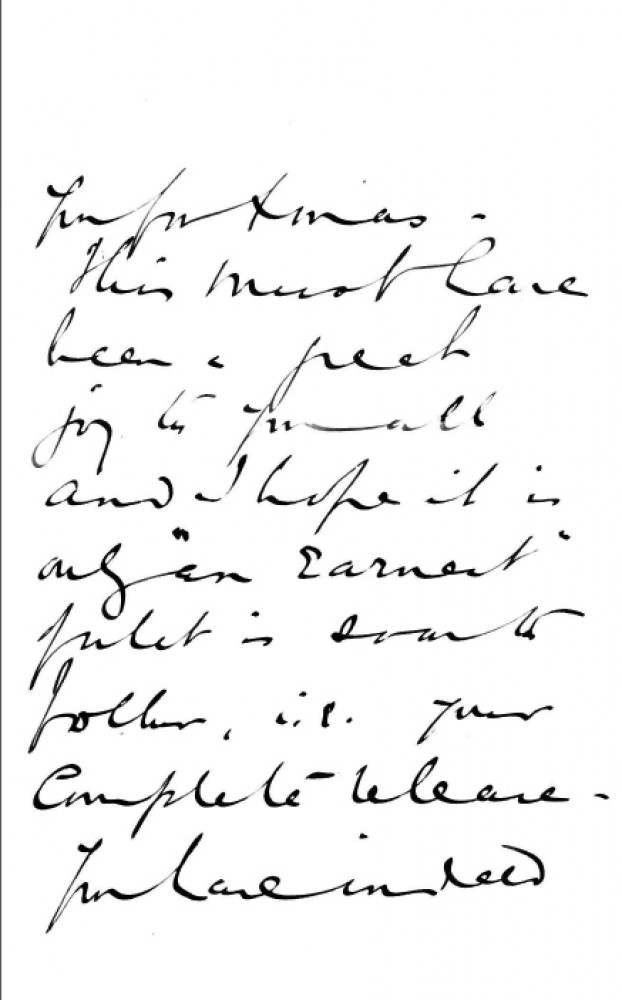 you for Xmas -
This must have
been a great
joy to you all
and I hope it is
only "an Earnest"
of what is soon to
follow, i.e. your
Complete release -
You have indeed